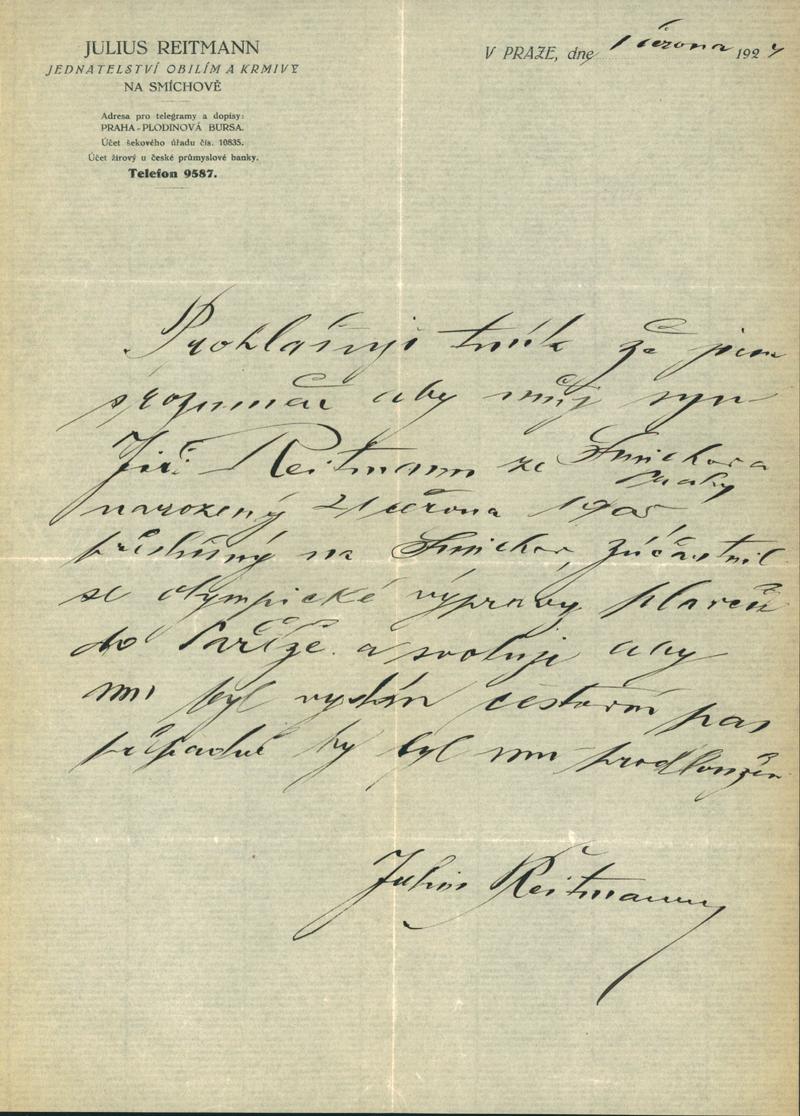 JULIUS REITMANN
JEDNATELSTVÍ OBILÍM A KRMIVY
NA SMÍCHOVĚ
Adresa pro telegramy a dopisy:
PRAHA-PLODINOVÁ BURSA.
Účet šekového úřadu čís. 10835.
Účet žirový u české průmyslové banky.
Telefon 9587.
V PRAZE, dne 1 června 1924
Prohlašuji tímto že jsem
srozuměn aby můj syn
Jiří Reitmann ze Smíchova
Prahy
narozený 21 června 1905
příslušný na Smíchov, zúčastnil
se olympické výpravy plavců
do Paříže a svoluji aby
mu byl vydán cestovní pas
případně by byl mu prodloužen
Julius Reitmann